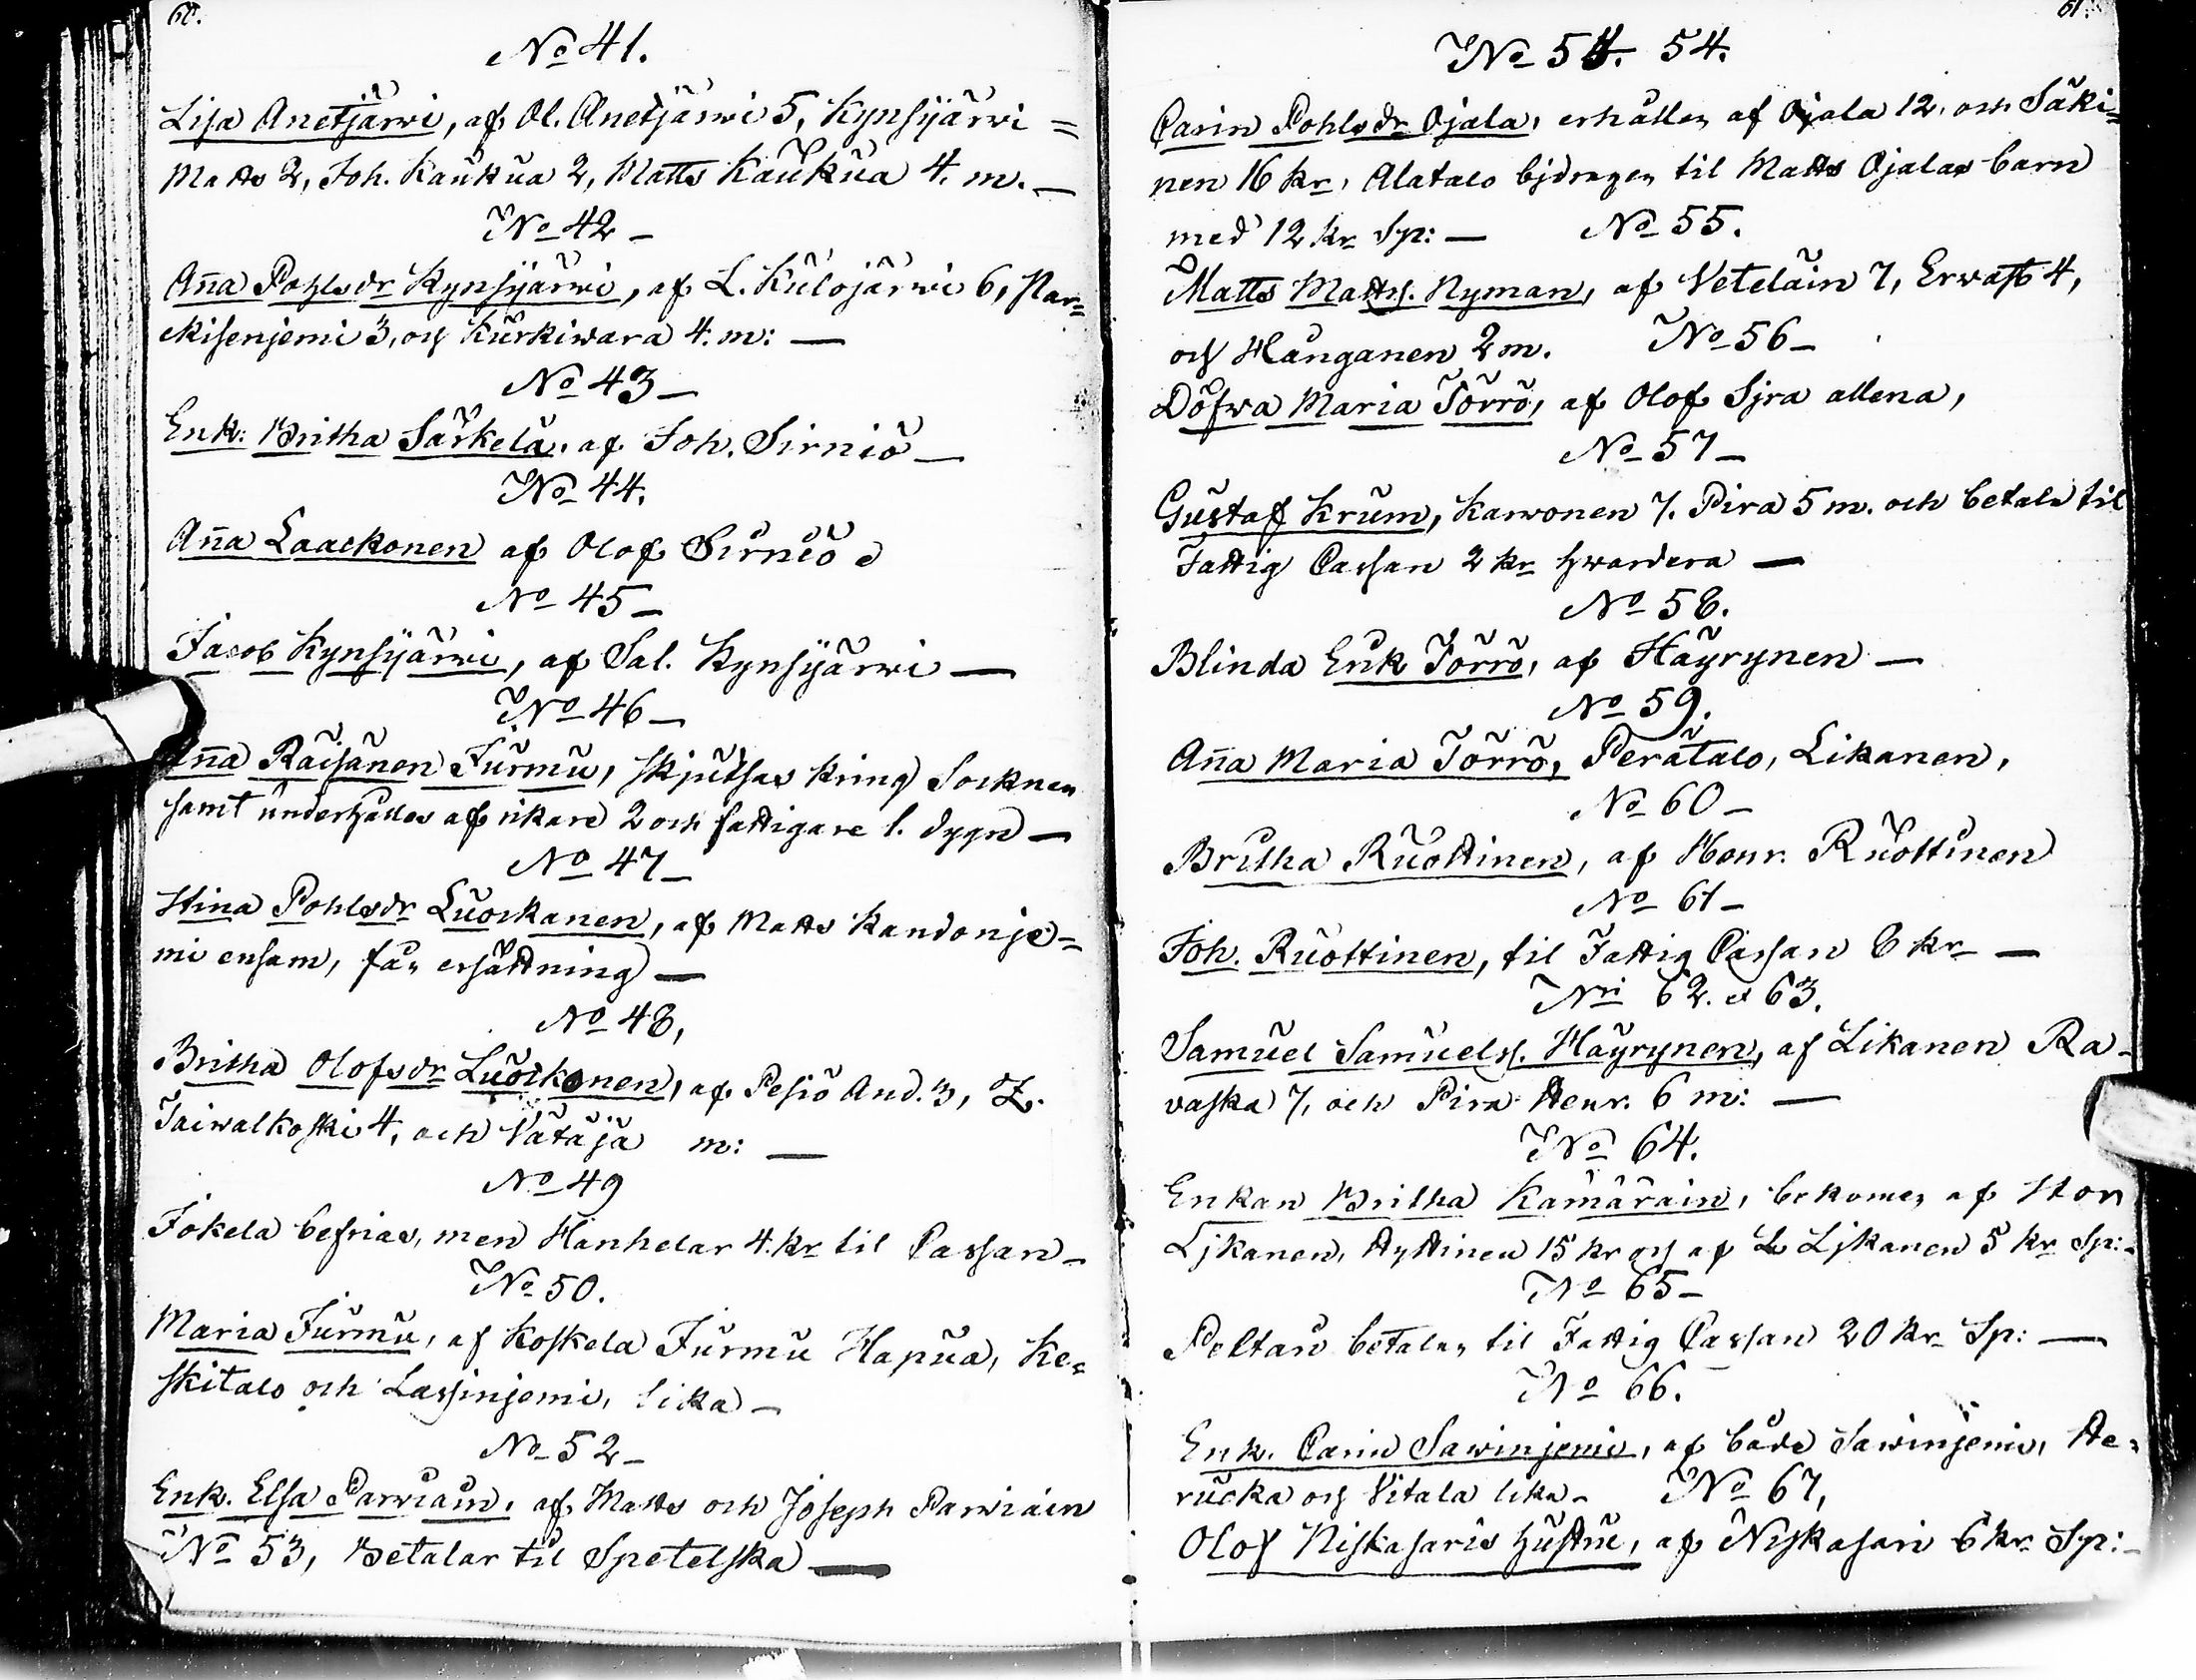 60.
No 41.
Lisa Anetjärwi, af Ol. Anetjärwi 5, Kynsijärwi =
Matts 2, Joh. Kaukua 2, Matts Kaukua 4. m. —
No 42 –
Aña Pohlsdr Kynsijärwi, af L. Kulojärwi 6, Par=
kisenjemi 3, och Kurkiwara 4. m: —
No 43 –
Enk: Britha Särkelä, af Joh. Sirniö –
No 44.
Aña Laackonen af Olof Sirniö
No 45 –
Jacob Kynsijärwi, af Sal. Kynsijärwi —
No 46 –
Aña Räisänen Jurmu, skjutsas kring Socknen
samt underhålles af rikare 2 och fattigare 1. dygn —
No 47 –
Stina Pohlsdr Luockanen, af Matts Kandonje=
mi ensam, får ersättning —
No 48,
Britha Olofsdr Luockonen, af Pesiö And. 3, Z.
Taiwalkoski 4, och Vätäjä m: —
No 49
Jokela befrias, men Hanhelar 4. kr til Cassan –
No 50.
Maria Jurmu, af Koskela Jurmu Hapua, Ke=
skitalo och Lassinjemi, lika –
No 52 –
Enk. Elsa Parwiain, af Matts och Joseph Parwiäin
No 53, Betalar til Spetelska —
61.
No 54. 54.
Carin Pohlsdr Ojala, erhåller af Ojala 12. och Säki=
nen 16 kr, Alatalo bjdrager til Matts Ojalas barn
med 12 kr Sp: — No 55.
Matts Matts. Nyman, af Veteläin 7, Erwast 4,
och Hånganen 2 m. No 56 –
Döfwa Maria Törrö, af Olof Sjra allena,
No 57 –
Gustaf Krum, Karwonen 7. Pira 5 m. och betala til
Fattig Cassan 2 kr hwardera —
No 58.
Blinda Enk Törrö, af Häyrynen —
No 59.
Aña Maria Törrö, Perätalo, Likanen,
No 60 –
Britha Ruottinen, af Henr. Ruottinen
No 61 –
Joh. Ruottinen, til Fattig Cassan 8 kr —
Nri 62. et 63.
Samuel Samuels. Häyrynen, af Likanen Ra-
vaska 7, och Pira Henr. 6 m: —
No 64.
Enkan Britha Kämäräin, bekomer af Stor
Ljkanen, Hyttinen 15 kr och af L Ljkanen 5 kr Sp: –
No 65 –
Peltan betaler til Fattig Cassan 20 kr Sp: —
No 66.
Enk. Carin Sawinjemi, af både Sawinjemi, He=
rucka och Vitala lika – No 67,
Olof Niskasaris hustru, af Niskasari 6 kr Sp: –